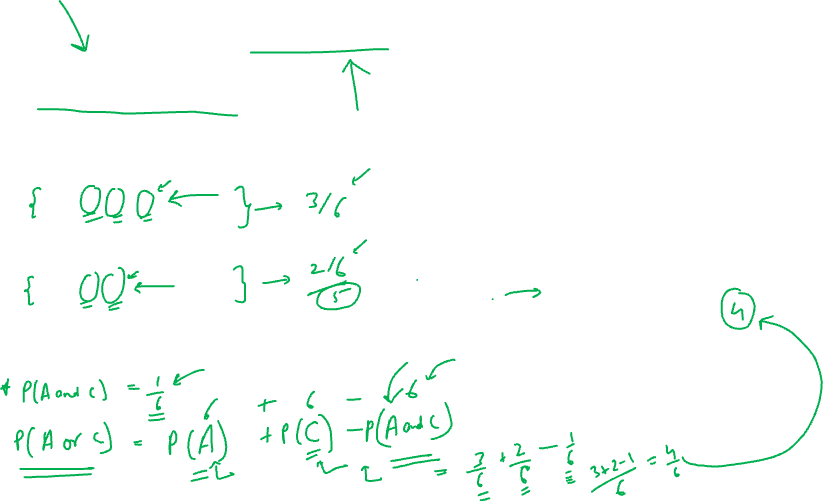 { O O O } → 3/6
{ O O } → 2/6
5
→ 4
* P(A and C) = 1/6
6 + 6 - 6
P(A or C) = P(A) + P(C) - P(A and C)
= 3/6 + 2/6 - 1/6 3+2-1/6 = 4/6